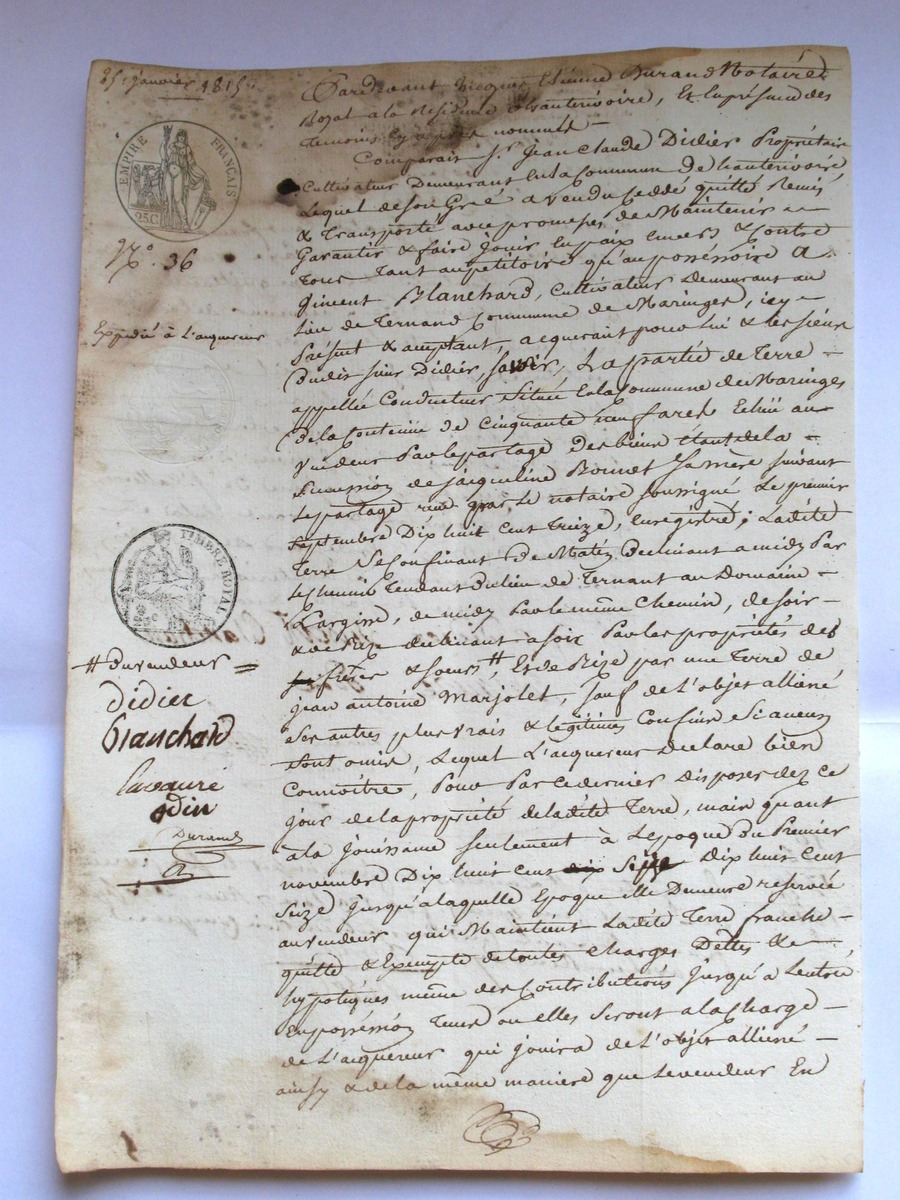 25 janvier 1815
EMPIRE FRANÇAIS
25C
N.º 36
Expédié à L'acquereur
TIMBRE ROYAL
# du vendeur =
Didier
Blanchard
odin
Durand
Pardevant Etienne Durand Notaire
Royal a la Résidence d'hauterivoire, Et En présence des
Temoins Cy après nommés —
Comparait S.r Jean Claude Didier Propriétaire
Cultivateur Demeurant En la Commune De hauterivoire
Lequel de Son Gré a vendu Cedde quitté Remis
& Transporté avec promesses de Maintenir —
Garantir & faire jouir En paix Envers & Contre
Tous Tant au pétitoire qu'au posséssoire A
Vincent Blanchard, Cultivateur Demeurant au
Lieu de Ternand Commune de Maringes, icy —
Présent & acceptant, acquerant pour Lui & les siens
Dudit sieur Didier, savoir, La partie de Terre —
appellée Conducteur Située En la Commune de Maringes
De la Contenue de Cinquante neuf ares Echüe au
Vendeur Par le partage Des biens Etant de la —
Succession de jacqueline Bonnet Sa mère suivant
Le partage reçu par Le notaire soussigné Le premier
Septembre Dix huit Cent Treize, Enregistré; Ladite
Terre Se Confinant De Matin Declinant a midy Par
Le chemin Tendant Du Lieu de Ternant au Domaine —
Largère, de midy Par le même Chemin, de soir —
& de Bize declinant a soir Par les propriétés des
frères & soeurs #, Et de Bize par une Terre de
jean antoine Marjolet, sauf de L'objet alliéné
Ses autres plus vrais & légitimes Confins Si aucuns
Sont omis, Lequel L'acquereur declare bien
Connoître, Pour Par Ce dernier disposer dez Ce
jour de la propriété de ladite Terre, mais quant
à la jouissance seulement à L'époque du Premier
novembre Dix huit Cent Dix huit Cent
Seize jusqu'a laquelle Epoque Elle Demeure réservée
au vendeur qui Maintient Ladite Terre franche —
quitte & Exempte de toutes Charges Dettes & —
hypotéques même des Contributions jusqu'à L'entrée
En posséssion Tems ou elles Seront a la Charge —
de L'acquereur qui jouira de L'objet alliéné —
ainsy & de la même maniere que Le vendeur En